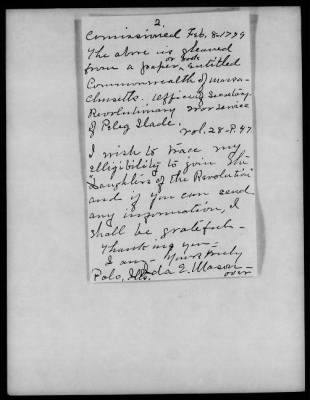 2.
Comissioned Feb. 8-1779
The above is gleaned
from a paper, or book entitled
Commonwealth of Massa-
chusetts. Office of Secretary.
Revolutionary War Service
of Peleg Slade.
Vol. 28-P. 97
I wish to trace my
elligibility to join the
Daughters of the Revolution
and if you can send
any information, I
shall be grateful.
Thanking you-
I am- Yours truly
Polo, Ills. Ida E. Mason-
over